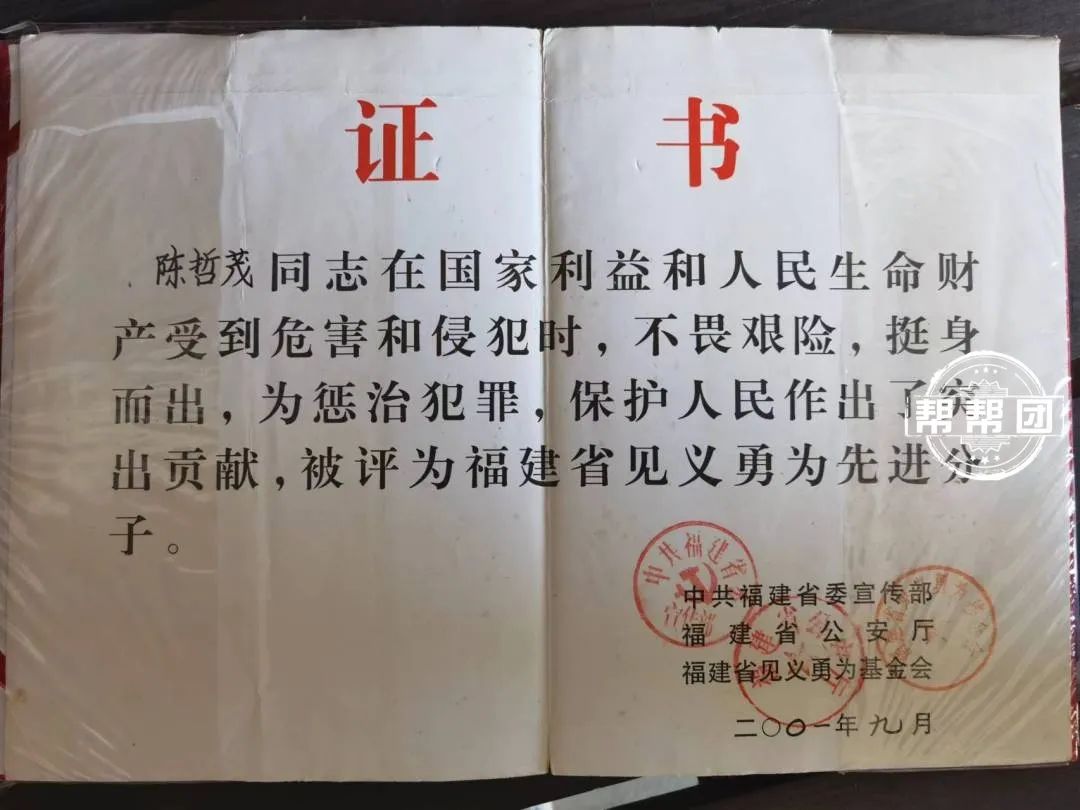 证 书
陈哲茂同志在国家利益和人民生命财
产受到危害和侵犯时，不畏艰险，挺身
而出，为惩治犯罪，保护人民作出了突
出贡献，被评为福建省见义勇为先进分
子。
帮帮团
中共福建省委宣传部
福建省公安厅
福建省见义勇为基金会
二〇〇一年九月
中共福建省